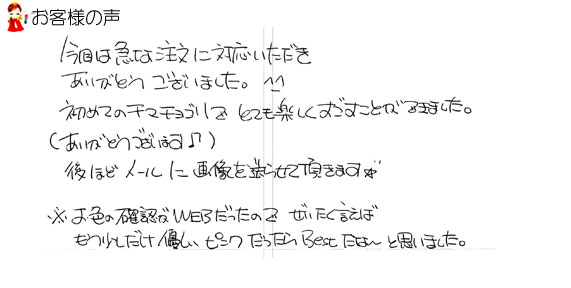 お客様の声
今回は急な注文に対応いただき
ありがとうございました。^^
初めてのチマチョゴリでとても楽しくすごすことができました。
(ありがとうございます♪)
後ほどメールに画像を送らせて頂きます
※お色の確認がWEBだったので ぜいたく言えば
もう少しだけ優しいピンクだったらBestだな〜と思いました。